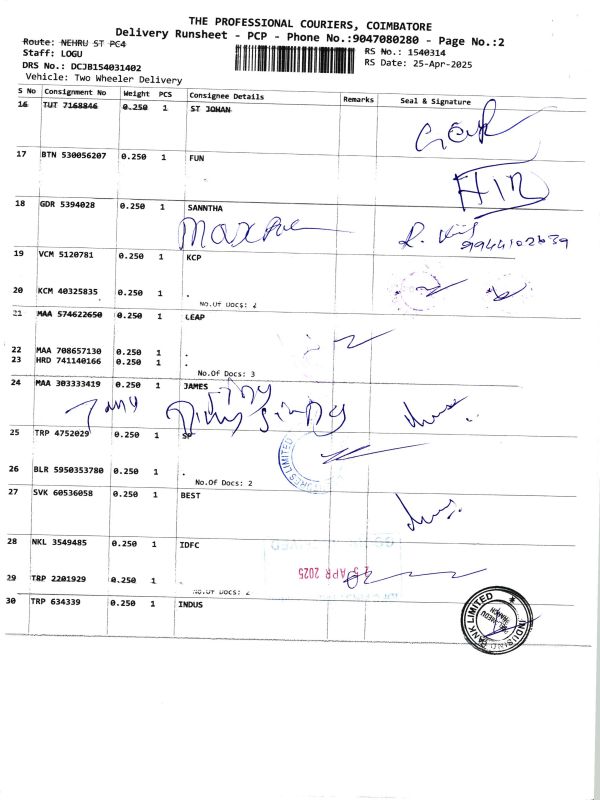 THE PROFESSIONAL COURIERS, COIMBATORE
Delivery Runsheet - PCP - Phone No.:9047080280 - Page No.:2
Route: NEHRU ST PC4
Staff: LOGU
RS No.: 1540314
DRS No.: DCJB154031402
RS Date: 25-Apr-2025
Vehicle: Two Wheeler Delivery
S No Consignment No Weight PCS Consignee Details Remarks Seal & Signature
16 TUT 7168846 0.250 1 ST JOHAN
17 BTN 530056207 0.250 1 FUN
18 GDR 5394028 0.250 1 SANNTHA
19 VCM 5120781 0.250 1 KCP
20 KCM 40325835 0.250 1 .
No.Of Docs: 2
21 MAA 574622650 0.250 1 LEAP
22 MAA 708657130 0.250 1 .
23 HRD 741140166 0.250 1 .
No.Of Docs: 3
24 MAA 303333419 0.250 1 JAMES
25 TRP 4752029 0.250 1 SP
LIMITED
26 BLR 5950353780 0.250 1 .
No.Of Docs: 2
27 SVK 60536058 0.250 1 BEST
28 NKL 3549485 0.250 1 IDFC
APR 2025
29 TRP 2201929 0.250 1 .
No.Of Docs: 2
30 TRP 634339 0.250 1 INDUS
INDUSIND BANK LIMITED